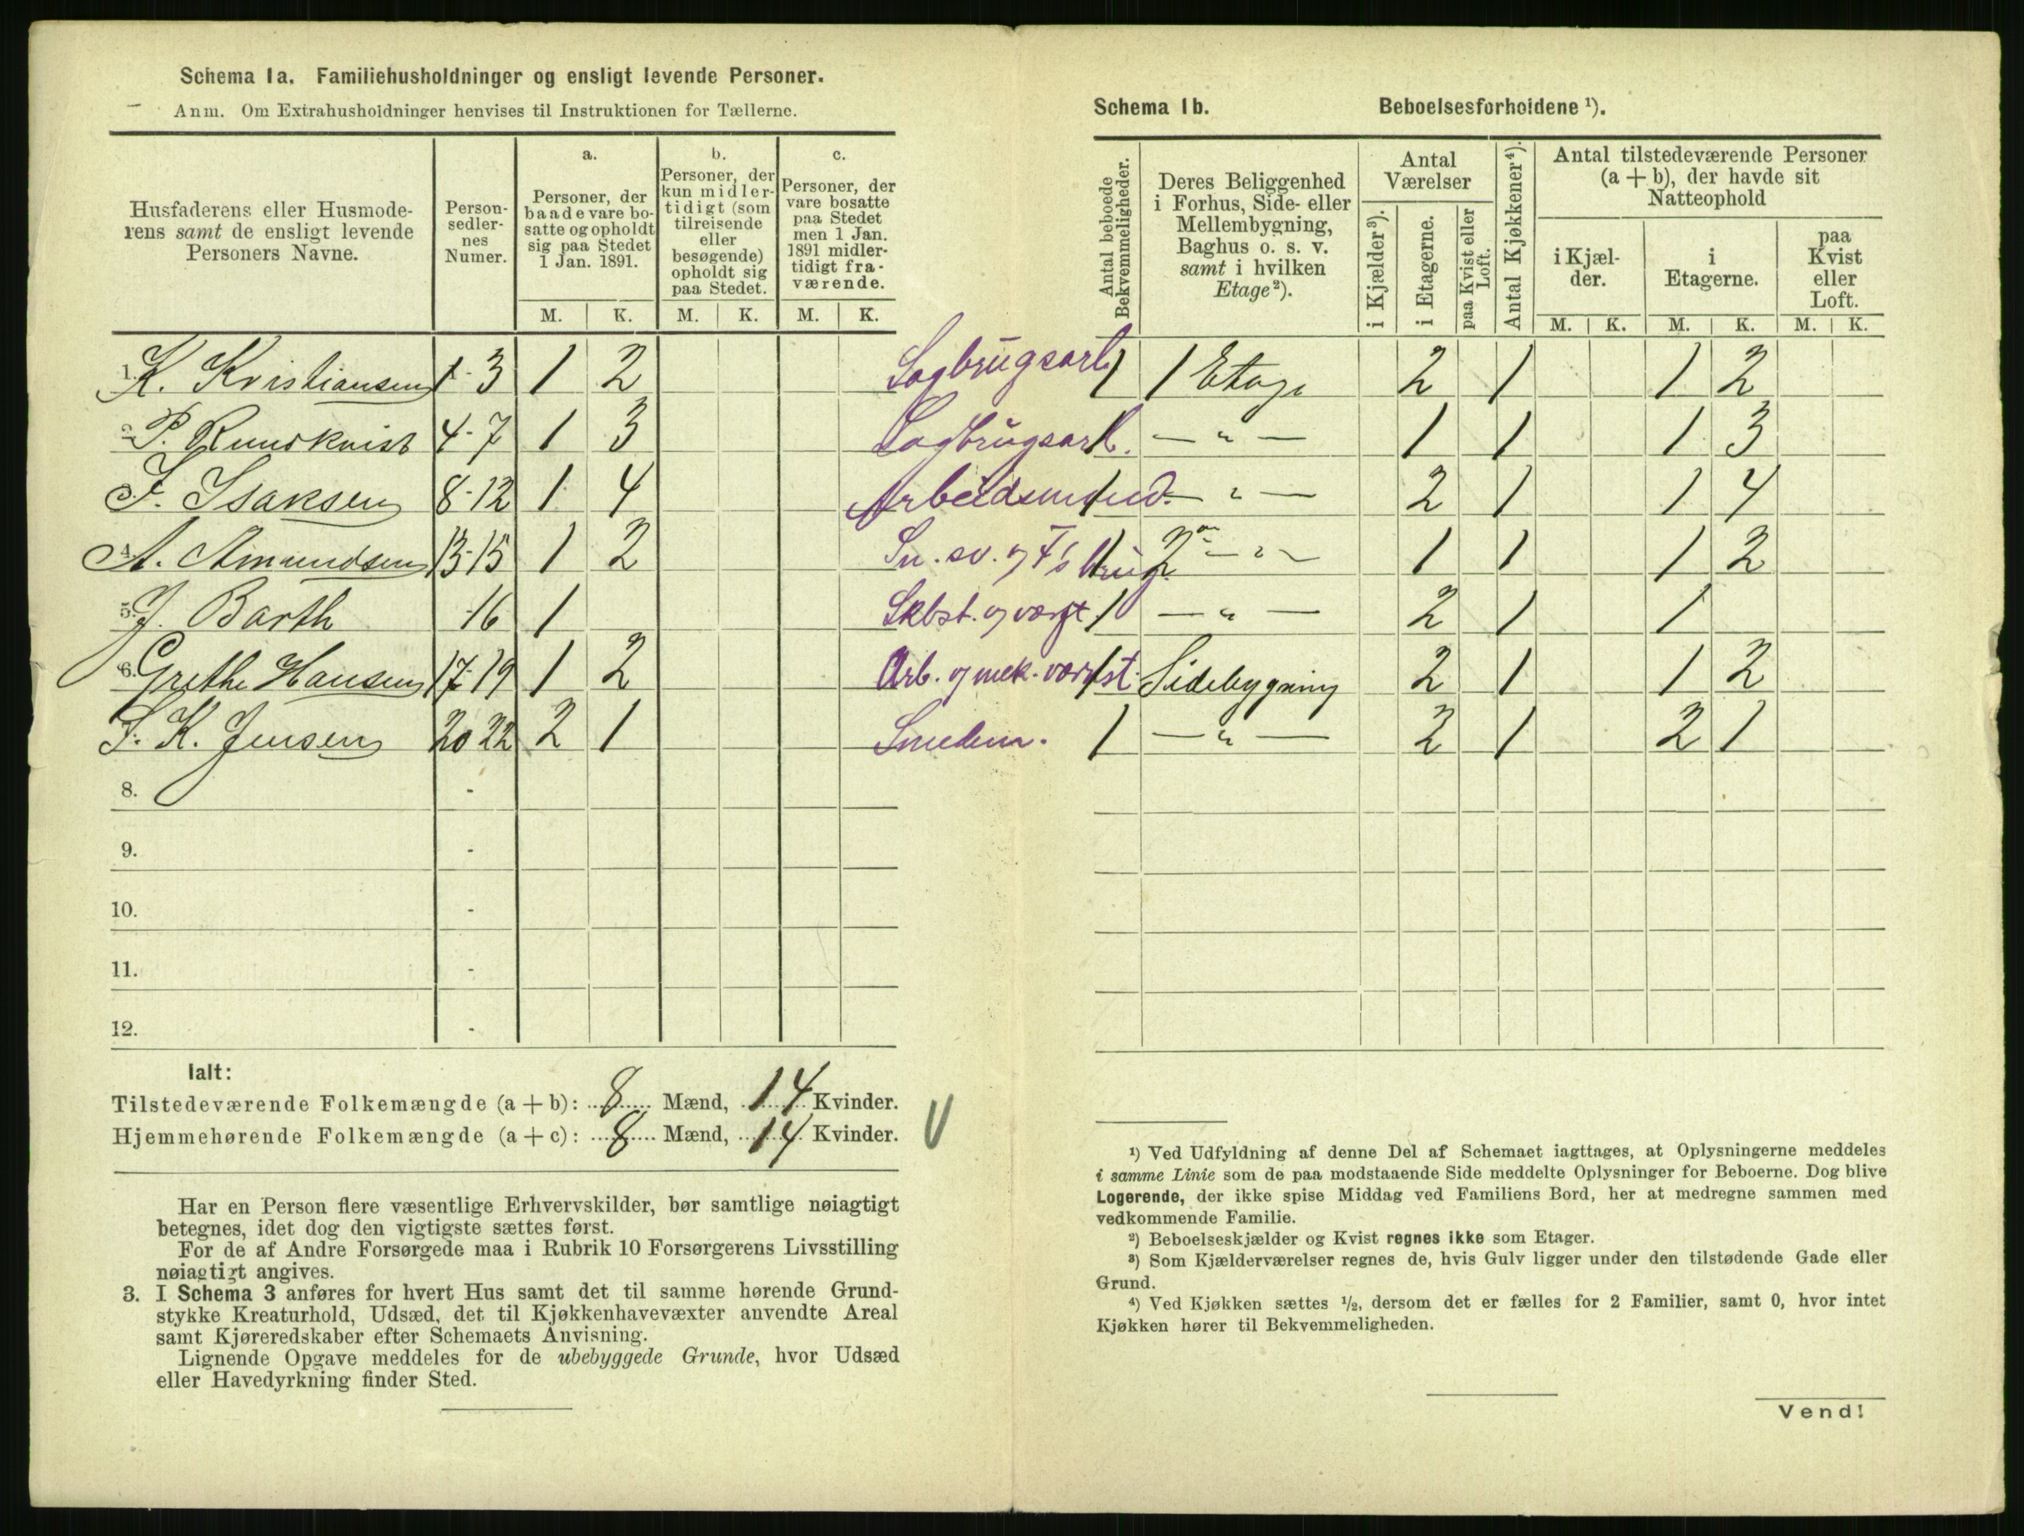 Schema 1a. Familiehusholdninger og ensligt levende Personer.
Anm. Om Extrahusholdninger henvises til Instruktionen for Tællerne.
Husfaderens eller Husmoderens samt de ensligt levende Personers Navne.
Personsedlernes Numer.
a. Personer, der baade vare bosatte og opholdt sig paa Stedet 1 Jan. 1891.
b. Personer, der kun midlertidigt (som tilreisende eller besøgende) opholdt sig paa Stedet.
c. Personer, der vare bosatte paa Stedet men 1 Jan. 1891 midlertidigt fraværende.
M. K. M. K. M. K.
1. K. Kristiansen 1-3 1 2 Sagbrugsarb.
2. P. Rundkvist 4-7 1 3 Sagbrugsarb.
3. J. Isaksen 8-12 1 4 Arbeidsmænd.
4. A. Amundsen 13-15 1 2
5. J. Barth -16 1
6. Grethe Hansen 17-19 1 2 Arb. og mek. værkst.
7. S. K. Jensen 20-22 2 1 Smedem.
8. -
9. -
10. -
11. -
12. -
Ialt:
Tilstedeværende Folkemængde (a + b): 8 Mænd, 14 Kvinder.
Hjemmehørende Folkemængde (a + c): 8 Mænd, 14 Kvinder.
Har en Person flere væsentlige Erhvervskilder, bør samtlige nøiagtigt
betegnes, idet dog den vigtigste sættes først.
For de af Andre Forsørgede maa i Rubrik 10 Forsørgerens Livsstilling
nøiagtigt angives.
3. I Schema 3 anføres for hvert Hus samt det til samme hørende Grund-
stykke Kreaturhold, Udsæd, det til Kjøkkenhavevæxter anvendte Areal
samt Kjøreredskaber efter Schemaets Anvisning.
Lignende Opgave meddeles for de ubebyggede Grunde, hvor Udsæd
eller Havedyrkning finder Sted.
Schema 1b. Beboelsesforholdene ¹).
Antal beboede Bekvemmeligheder.
Deres Beliggenhed i Forhus, Side- eller Mellembygning, Baghus o. s. v. samt i hvilken Etage²).
Antal Værelser
i Kjælder³).
i Etagerne.
paa Kvist eller Loft.
Antal Kjøkkener⁴).
Antal tilstedeværende Personer (a + b), der havde sit Natteophold
i Kjælder.
i Etagerne.
paa Kvist eller Loft.
M. K. M. K. M. K.
1 1 Etage 2 1 1 2
1 — " — 1 1 1 3
1 — " — 2 1 1 4
1 2 — " — 1 1 1 2
1 — " — 2 1 1
1 Sidebygning 2 1 1 2
1 — " — 2 1 2 1
¹) Ved Udfyldning af denne Del af Schemaet iagttages, at Oplysningerne meddeles
i samme Linie som de paa modstaaende Side meddelte Oplysninger for Beboerne. Dog blive
Logerende, der ikke spise Middag ved Familiens Bord, her at medregne sammen med
vedkommende Familie.
²) Beboelseskjælder og Kvist regnes ikke som Etager.
³) Som Kjælderværelser regnes de, hvis Gulv ligger under den tilstødende Gade eller
Grund.
⁴) Ved Kjøkken sættes ½, dersom det er fælles for 2 Familier, samt 0, hvor intet
Kjøkken hører til Bekvemmeligheden.
Vend!